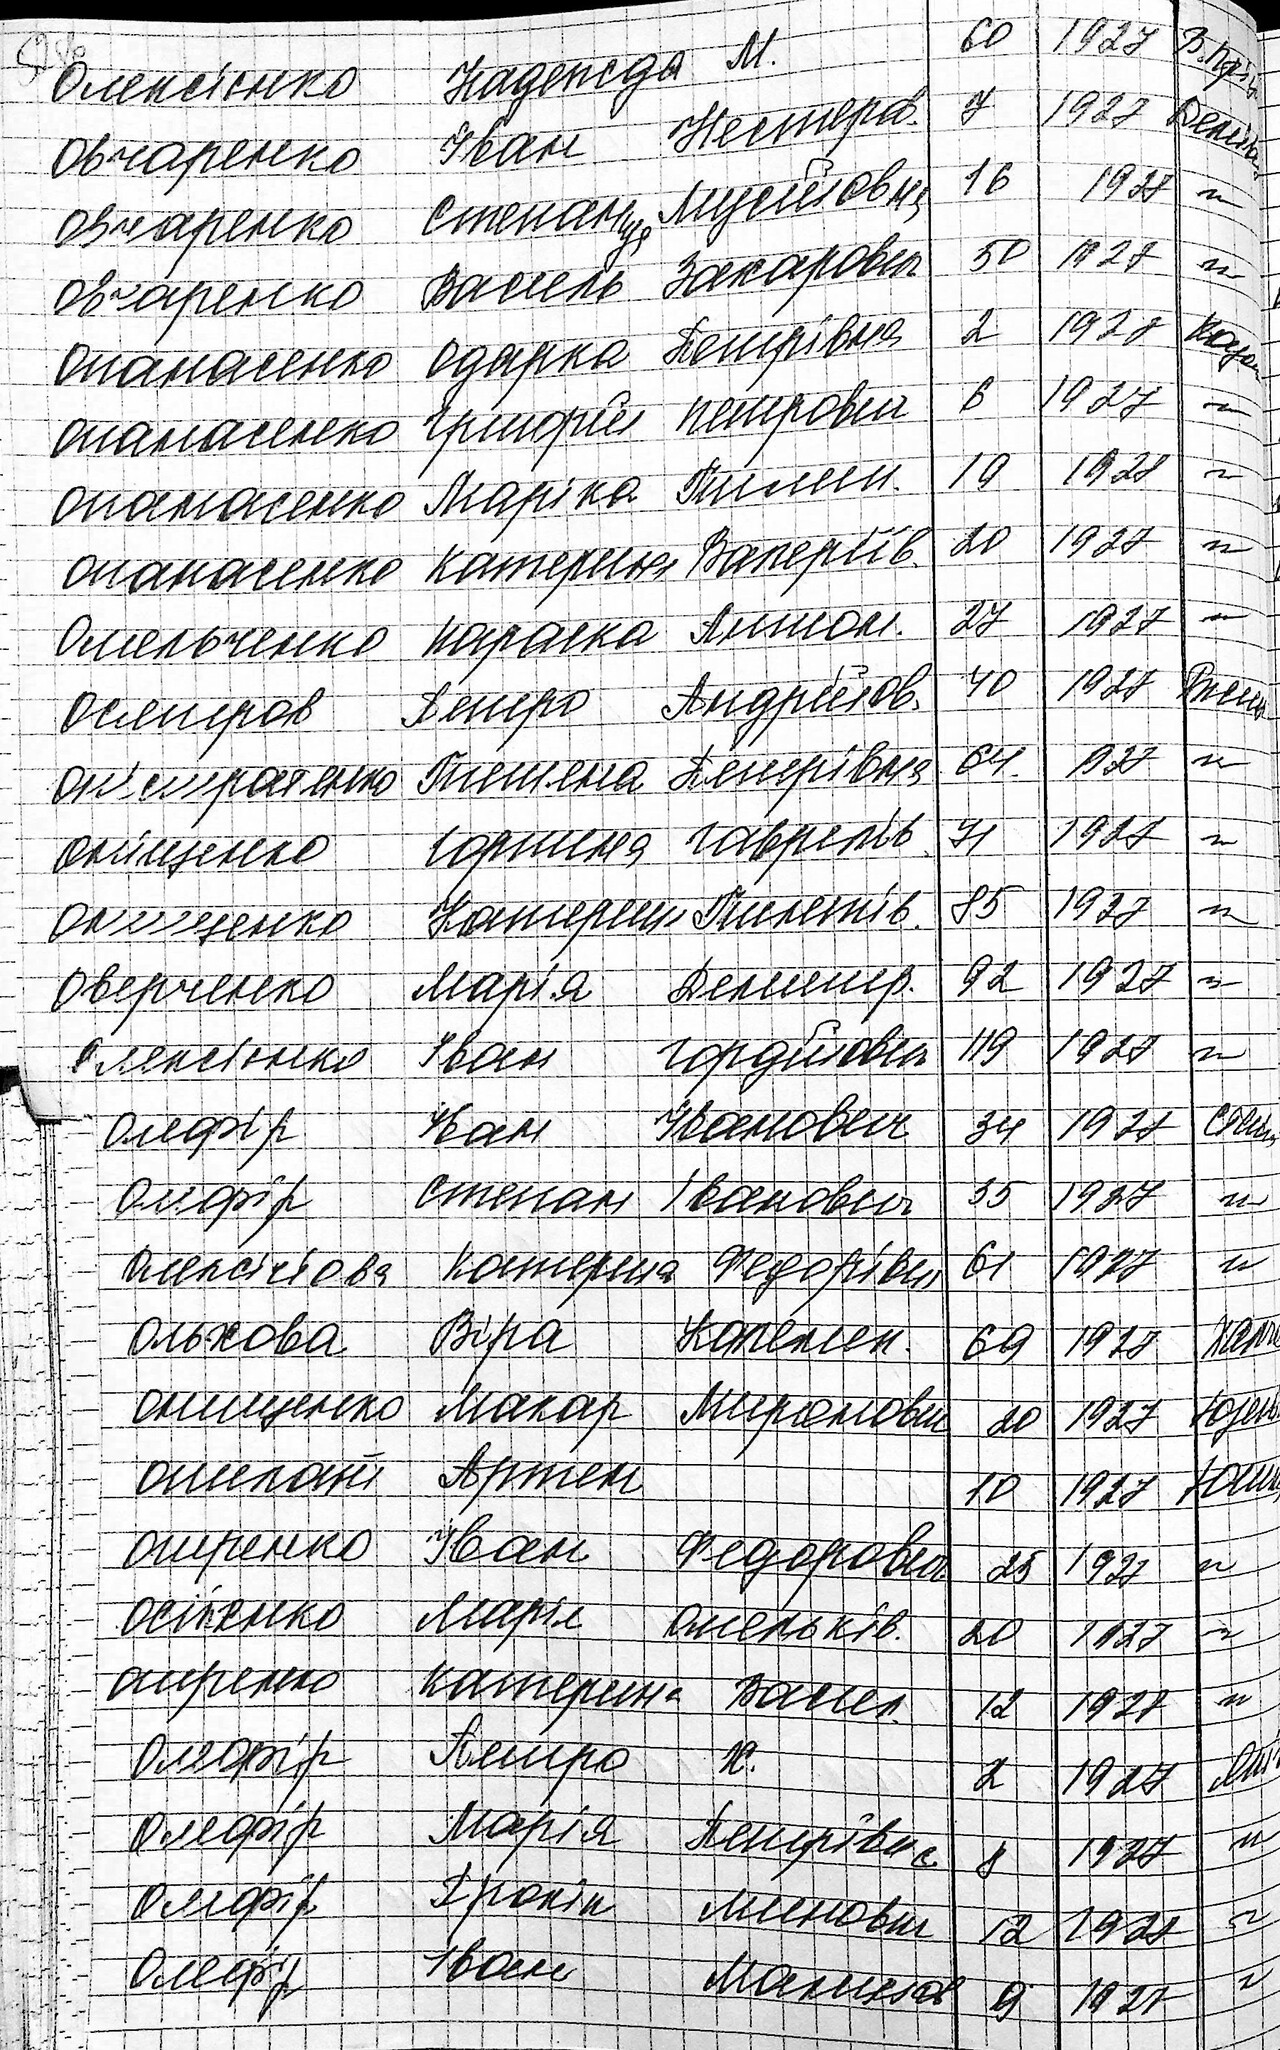 Олексієнко Надежда М. 60 1927
Овчаренко Іван Нестеров. 7 1927
Овчаренко Степанида Мусійовна 16 1927 "
Овчаренко Василь Захарович 50 1927 "
Опанасенко Одарка Петрівна 2 1927
Опанасенко Григорій Петрович 6 1927 "
Опанасенко Маріка Пилип. 19 1927 "
Опанасенко Катерина Валеріїв. 20 1927 "
Омельченко Параска Антон. 27 1927 "
Осетров Петро Андрійов. 40 1927
Петрівна 64. 1927 "
Оніщенко Горпина Гаврилів. 71 1927 "
Онищенко Катерина Пилипів. 85 1927 "
Оверченко Марія Демент. 92 1927 "
Олексієнко Іван Гордійович 119 1927 "
Олефір Іван Іванович 34 1927
Олефір Степан Іванович 35 1927 "
Катерина Федорівна 61 1927 "
Ольхова Віра Клемен. 69 1927
Онищенко Макар Миронович 20 1927
Ошкалат Артем 10 1927
Опренко Іван Федорович 25 1927 "
Осіпенко Марія Омельків. 20 1927 "
Опренко Катерина Васил. 12 1927 "
Олефір Петро К. 2 1927
Олефір Марія Петрівна 8 1927 "
Олефір Прокіп Минович 12 1927 "
Олефір Іван 9 1927 "